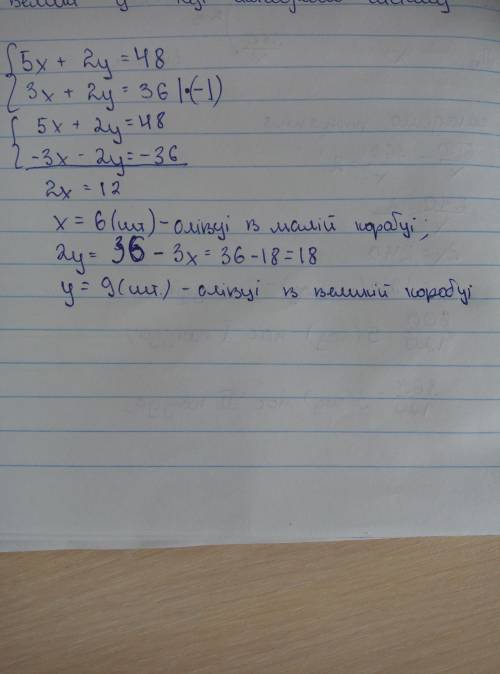 5x + 2y = 48
3x + 2y = 36 |·(-1)
5x + 2y = 48
-3x - 2y = -36
2x = 12
x = 6 (шт) - олівці в малій коробці;
2y = 36 - 3x = 36 - 18 = 18
y = 9 (шт.) - олівці в великій коробці